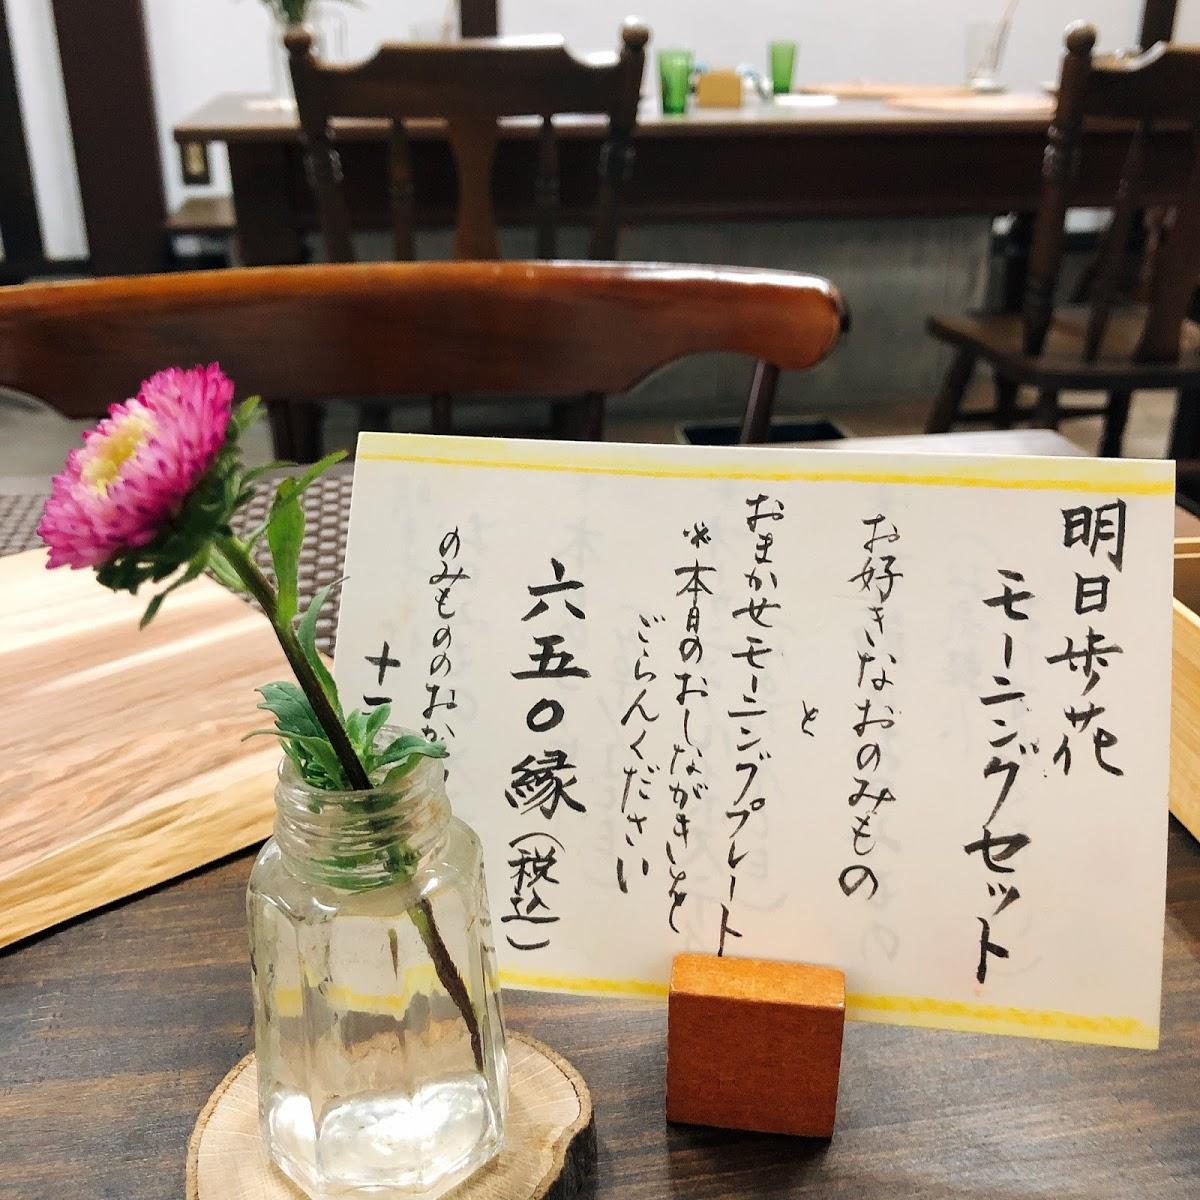 明日歩花
モーニングセット
お好きなおのみもの
と
おまかせモーニングプレート
※本日のおしながきいたを
ごらんください
六五〇縁(税込)
のみもののおか
十一